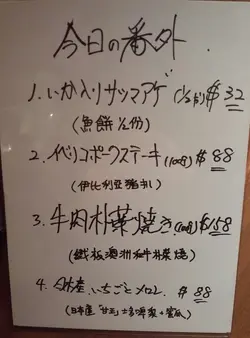 今日の番外
1. いか入りサツマアゲ (1/2份) $32
(魚餅½份)
2. イベリコポークステーキ (100g) $88
(伊比利亞豬扒)
3. 牛肉朴葉燒き (100g) $158
(鐵板澳洲和牛朴葉燒)
4. 日本産 いちごとメロン $88
(日本産「甘王」士多啤梨+蜜瓜)